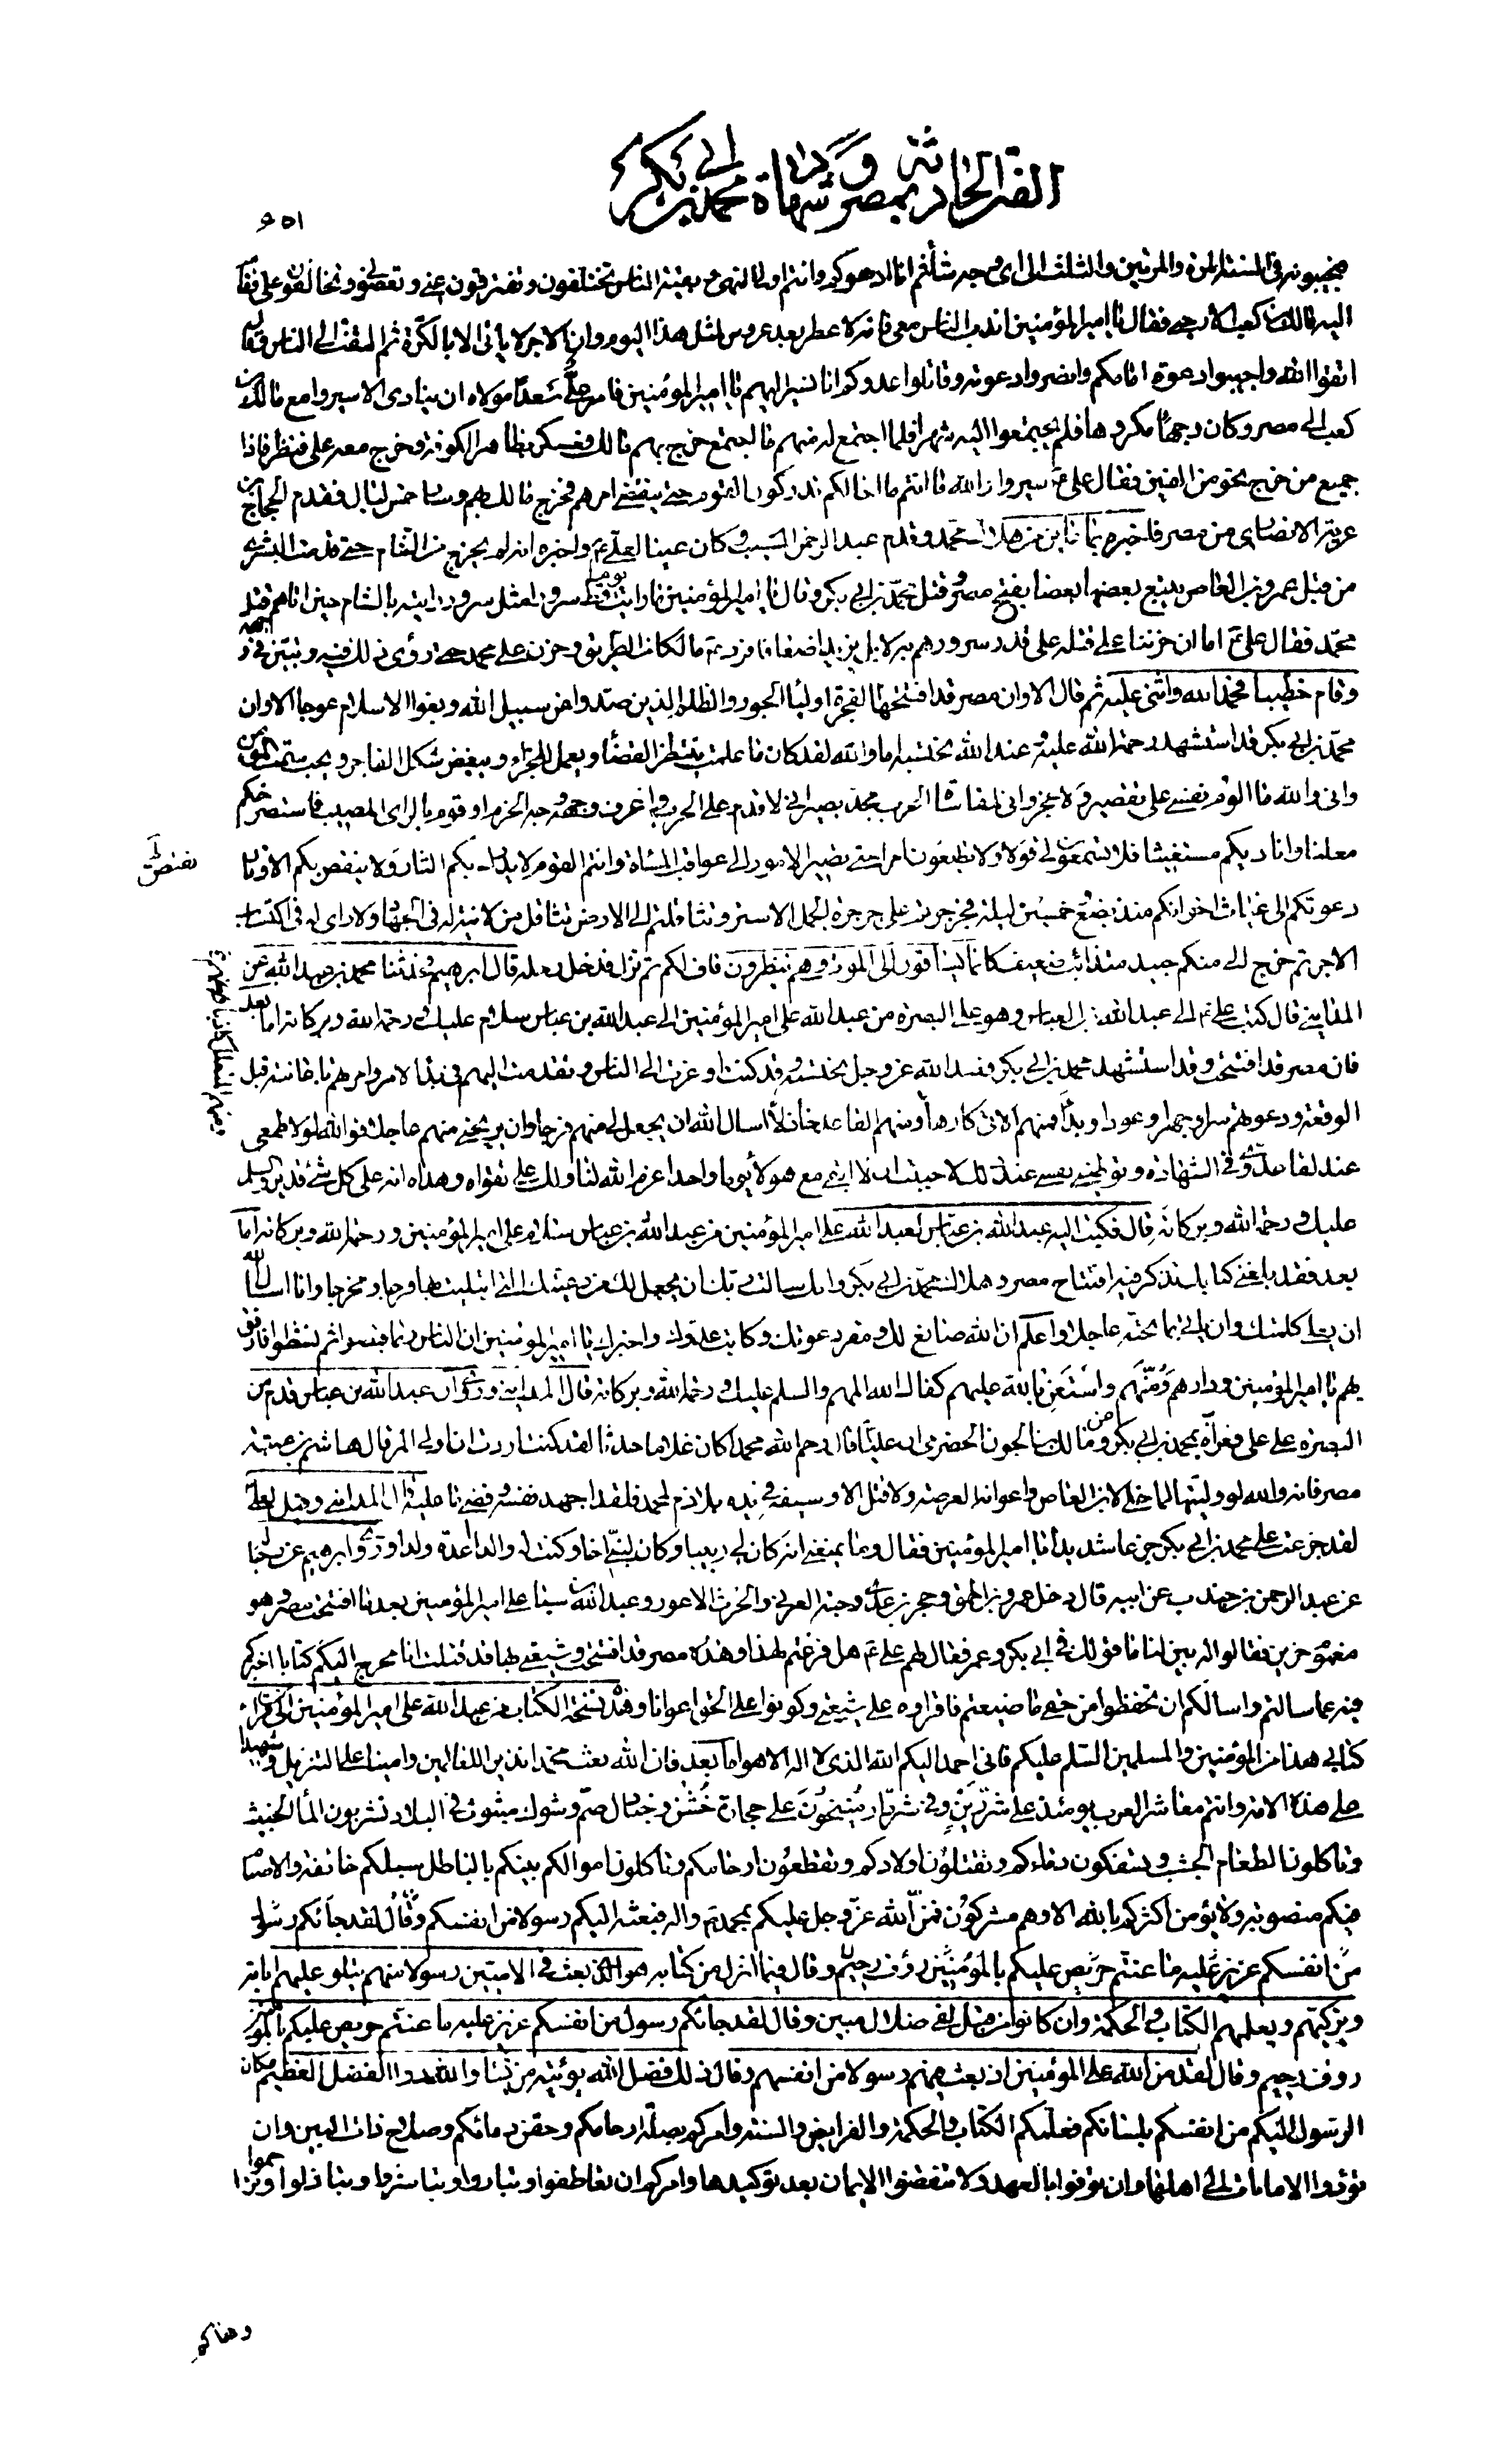 الفتن الحادثة بمصر وشهادة محمد بن ابي بكر
٦٥١
فيجيبونه في السنة المرة والمرتين والثلث الى اى وجه شاء ثم انا ادعوكم وانتم اولوا النهى وبقية الناس تختلفون وتفترقون عني وتعصوني وتخالفون علي فقام
اليه مالك بن كعب الارحبي فقال يا امير المؤمنين اندب الناس معي فانه لا عطر بعد عروس لمثل هذا اليوم وان الاجر لا ياتى الا بالكرة ثم التفت الى الناس وقال
اتقوا الله واجيبوا دعوة امامكم وانصروا دعوته وقاتلوا عدوكم انا نسير اليهم يا امير المؤمنين فامر علي سعدا مولاه ان ينادى الا سيروا مع مالك بن
كعب الى مصر وكان وجها مكروها فلم يجتمعوا اليه شهرا فلما اجتمع له منهم ما اجتمع خرج بهم مالك فعسكر بظاهر الكوفة وخرج معه علي فنظر فاذا
جميع من خرج نحو من الفين فقال علي ع سيروا والله ما انتم ما اخالكم تدركون القوم حتى ينقضي امرهم فخرج مالك بهم وسار خمس ليال فقدم الحجاج بن
غزية الانصارى من مصر فاخبره بما عاين من هلاك محمد وقدم عبد الرحمن بن المسيب وكان عينا لعلي ع واخبره انه لم يخرج من الشام حتى قدمت البشرى
من قبل عمرو بن العاص يتبع بعضها بعضا بفتح مصر وقتل محمد بن ابي بكر وقال يا امير المؤمنين ما رايت يوما قط سرورا مثل سرور رايته بالشام حين اتاهم قتل
محمد فقال علي ع اما ان حزننا على قتله على قدر سرورهم به لا بل يزيد اضعافا فرد مالكا من الطريق وحزن على محمد حتى رؤى ذلك فيه وتبين في وجهه
وقام خطيبا فحمد الله واثنى عليه ثم قال الا وان مصر قد افتتحها الفجرة اولياء الجور والظلم الذين صدوا عن سبيل الله وبغوا الاسلام عوجا الا وان
محمد بن ابي بكر قد استشهد رحمة الله عليه وعند الله نحتسبه اما والله لقد كان ما علمت ينتظر القضاء ويعمل للجزاء ويبغض شكل الفاجر ويحب سمت المؤمن
وانى والله ما الوم نفسي على تقصير ولا عجز وانى لمقاساة الحرب مجد بصير انى لاقدم على الحرب واعرف وجه الحزم واقوم بالراى المصيب فاستصرخكم
معلنا واناديكم مستغيثا فلا تسمعون لي قولا ولا تطيعون لي امرا حتى تصير الامور الى عواقب المساءة وانتم القوم لا يدرك بكم الثار ولا ينقض بكم الاوتار
دعوتكم الى غياث اخوانكم منذ بضع خمسين ليلة فجرجرتم على جرجرة الجمل الاسر وتثاقلتم الى الارض تثاقل من لا نية له في الجهاد ولا راى له في اكتساب
الاجر ثم خرج الى منكم جنيد متذائب ضعيف كانما يساقون الى الموت وهم ينظرون فاف لكم ثم نزل فدخل رحله قال ابرهيم وحدثنا محمد بن عبد الله عن
المدايني قال كتب علي ع الى عبد الله بن العباس وهو على البصرة من عبد الله علي امير المؤمنين الى عبد الله بن عباس سلام عليك ورحمة الله وبركاته اما بعد
فان مصر قد افتتحت وقد استشهد محمد بن ابي بكر فعند الله عز وجل نحتسبه وقد كنت اوعزت الى الناس وتقدمت اليهم في بدء الامر وامرهم باغاثته قبل
الوقعة ودعوتهم سرا وجهرا وعودا وبدءا فمنهم الاتى كارها ومنهم القاعد خاذلا اسال الله ان يجعل لي منهم فرجا وان يريحني منهم عاجلا فوالله لولا طمعى
عند لقاء عدوى في الشهادة وتوطيني نفسي عند ذلك لاحببت ان لا ابقى مع هولاء يوما واحدا عزم الله لنا ولك على تقواه وهداه انه على كل شيء قدير والسلم
عليك ورحمة الله وبركاته قال فكتب اليه عبد الله بن عباس لعبد الله علي امير المؤمنين من عبد الله بن عباس سلام على امير المؤمنين ورحمة الله وبركاته اما
بعد فقد بلغني كتابك تذكر فيه افتتاح مصر وهلاك محمد بن ابي بكر وانك سالت ربك ان يجعل لك من رعيتك التي ابتليت بها فرجا ومخرجا وانا اسال الله
ان يعلي كلمتك وان ياتى بما تحبه عاجلا واعلم ان الله صانع لك ومعز دعوتك وكابت عدوك واخبرك يا امير المؤمنين ان الناس ربما قبضوا ثم نشطوا فارفق
بهم يا امير المؤمنين ودارهم ومنهم واستعن بالله عليهم كفاك الله المهم والسلم عليك ورحمة الله وبركاته قال المدايني وروى ان عبد الله بن عباس قدم من
البصرة على علي فعزاه بمحمد بن ابي بكر وعن مالك بن الجون الحضرمي ان عليا قال رحم الله محمدا كان غلاما حدثا لقد كنت اردت ان اولي المرقال هاشم بن عتبة
مصر فانه والله لو وليتها لما خلى لابن العاص واعوانه العرصة ولا قتل الا وسيفه في يده بلا ذم لمحمد فلقد اجهد نفسه وقضى ما عليه قال المدايني وقيل لعلي
لقد جزعت على محمد بن ابي بكر جزعا شديدا يا امير المؤمنين فقال وما يمنعني انه كان لي ربيبا وكان لبني اخا وكنت له والدا اعده ولدا وروى ابرهيم عن رجاله
عن عبد الرحمن بن جندب عن ابيه قال دخل عمرو بن الحمق وحجر بن عدى وحبة العرني والحرث الاعور وعبد الله بن سبا على امير المؤمنين بعد ما افتتحت مصر وهو
مغموم حزين فقالوا له بين لنا ما قولك في ابي بكر وعمر فقال لهم علي ع هل فرغتم لهذا وهذه مصر قد افتتحت وشيعتي بها قد قتلت انا مخرج اليكم كتابا اخبركم
فيه عما سالتم واسالكم ان تحفظوا من حقي ما ضيعتم فاقراوه على شيعتي وكونوا على الحق اعوانا وهذه نسخة الكتاب من عبد الله علي امير المؤمنين الى من قرا
كتابي هذا من المؤمنين والمسلمين السلم عليكم فانى احمد اليكم الله الذى لا اله الا هو اما بعد فان الله بعث محمدا نذيرا للعالمين وامينا على التنزيل وشهيدا
على هذه الامة وانتم معاشر العرب يومئذ على شر دين وفي شر دار منيخون على حجارة خشن وجنادل صم وشوك مبثوث في البلاد تشربون الماء الخبيث
وتاكلون الطعام الجشب وتسفكون دماءكم وتقتلون اولادكم وتقطعون ارحامكم وتاكلون اموالكم بينكم بالباطل سبلكم خائفة والاصنام
فيكم منصوبة ولا يؤمن اكثركم بالله الا وهم مشركون فمن الله عز وجل عليكم بمحمد ص واله فبعثه اليكم رسولا من انفسكم وقال لقد جاءكم رسول
من انفسكم عزيز عليه ما عنتم حريص عليكم بالمؤمنين رؤف رحيم وقال فيما انزل من كتابه هو الذي بعث في الاميين رسولا منهم يتلو عليهم اياته
ويزكيهم ويعلمهم الكتاب والحكمة وان كانوا من قبل لفي ضلال مبين وقال لقد جائكم رسول من انفسكم عزيز عليه ما عنتم حريص عليكم بالمؤمنين
روف رحيم وقال لقد من الله على المؤمنين اذ بعث فيهم رسولا من انفسهم وقال ذلك فضل الله يوتيه من يشاء والله ذوا الفضل العظيم فكان
الرسول اليكم من انفسكم بلسانكم فعلمكم الكتاب والحكمة والفرايض والسنة وامركم بصلة ارحامكم وحقن دمائكم وصلاح ذات البين وان
تؤدوا الامانات الى اهلها وان توفوا بالعهد ولا تنقضوا الايمان بعد توكيدها وامركم ان تعاطفوا وتباروا وتباشروا وتباذلوا وتراحموا
ونهاكم